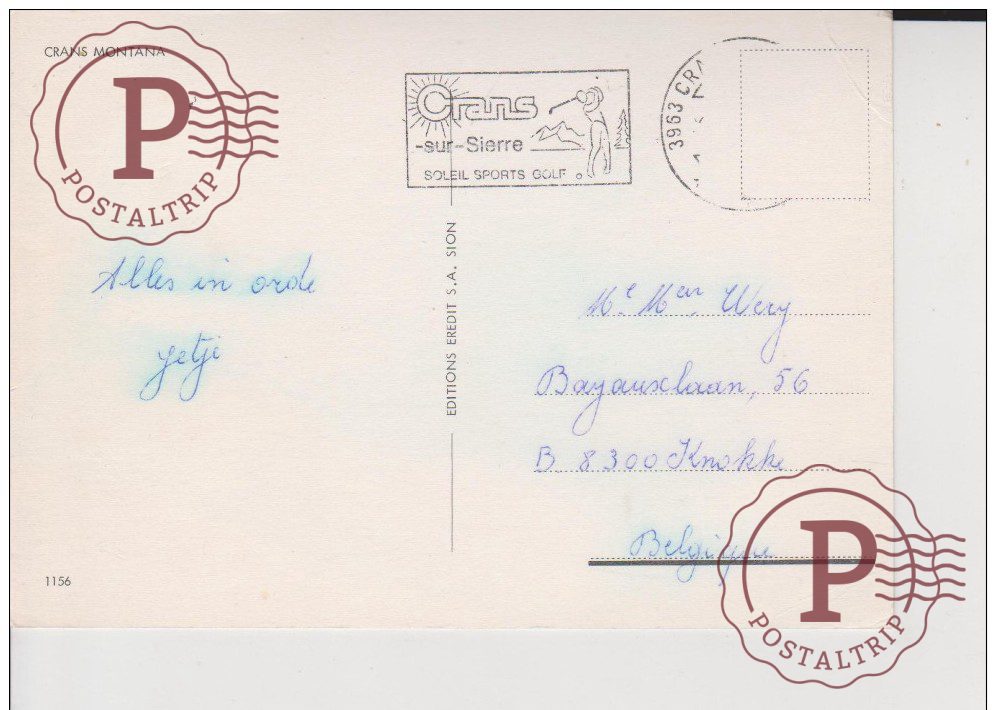 CRANS MONTANA
P
POSTALTRIP
Crans
-sur-Sierre
SOLEIL SPORTS GOLF
3963 CRA
EDITIONS EREDIT S.A. SION
Alles in orde
Jetje
Me Mer Wery
Bayauxlaan, 56
B 8300 Knokke
Belgique
1156
P
POSTALTRIP